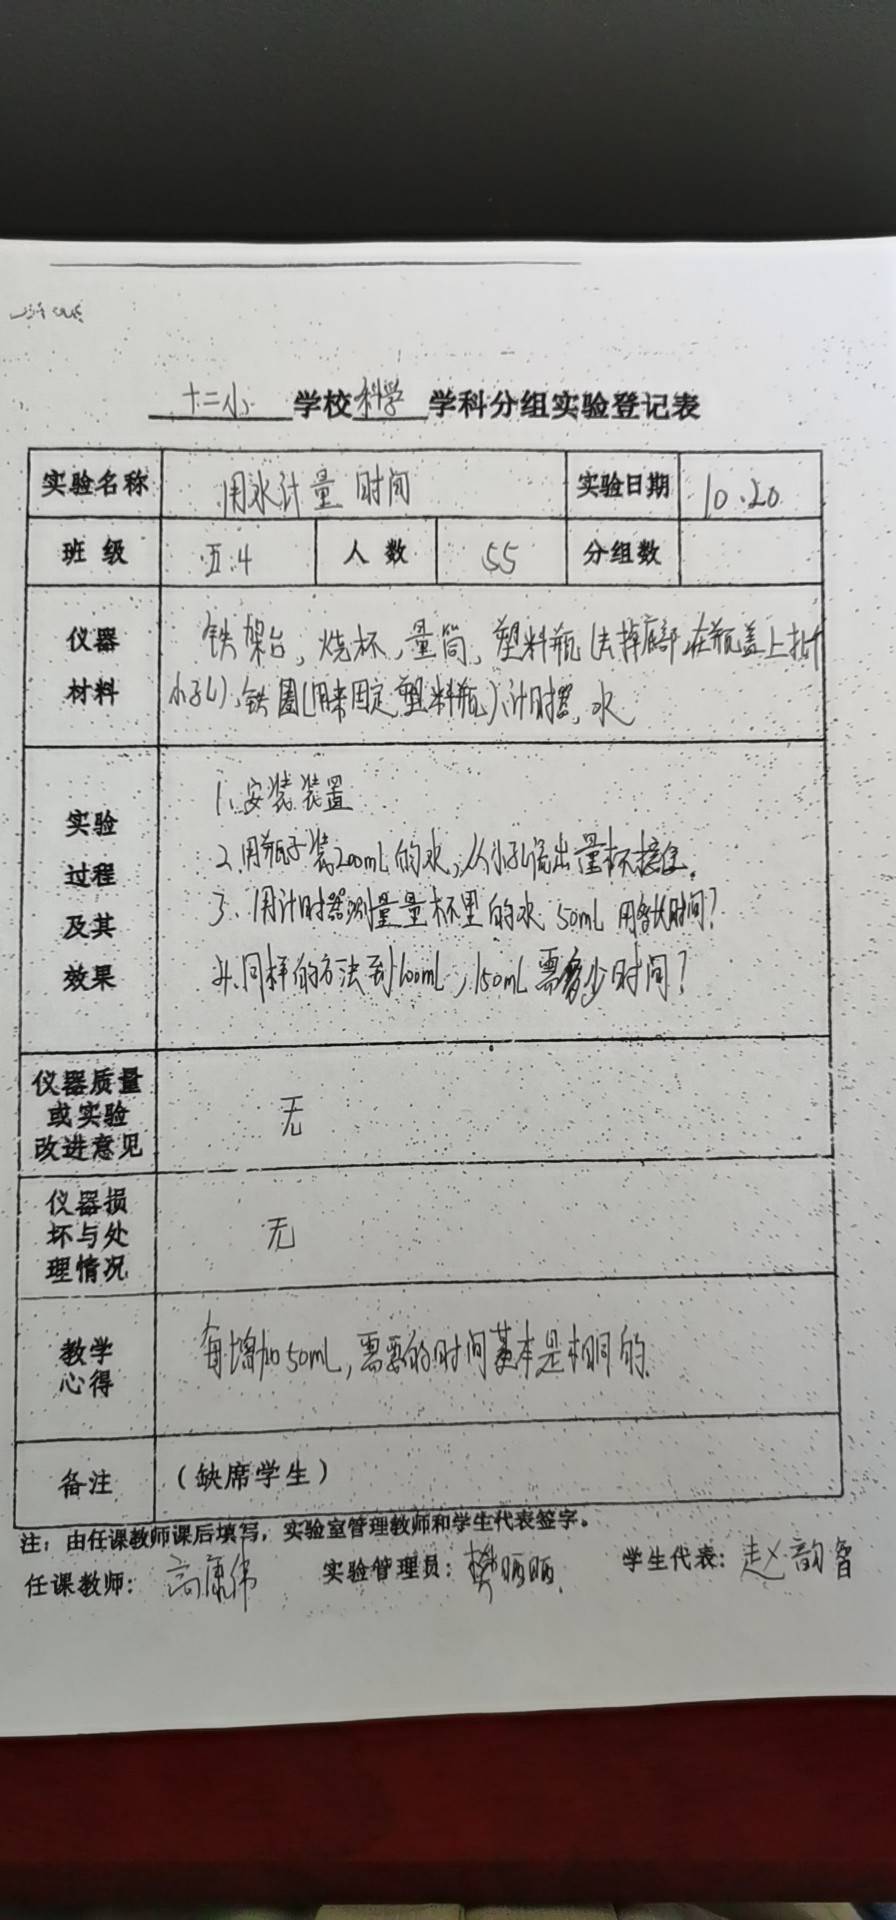 十二小 学校 科学 学科分组实验登记表
实验名称 用水计量时间 实验日期 10.20
班级 五.4 人数 55 分组数
仪器材料 铁架台,烧杯,量筒,塑料瓶(去掉底部,在瓶盖上扎个
小孔),铁圈(用来固定塑料瓶),计时器,水
实验过程及其效果
1、安装装置
2、用瓶子装200mL的水,从小孔流出量杯接住.
3、用计时器测量量杯里的水50mL用多长时间?
4、同样的方法到100mL,150mL需多少时间?
仪器质量或实验改进意见 无
仪器损坏与处理情况 无
教学心得 每增加50mL,需要的时间基本是相同的.
备注 (缺席学生)
注:由任课教师课后填写,实验室管理教师和学生代表签字。
任课教师:高康伟 实验管理员:樊丽丽 学生代表:赵韵智